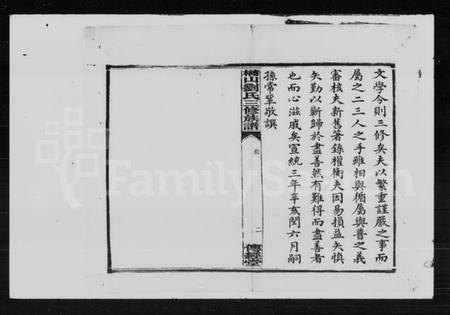 文學今則三修矣夫以繁重謹嚴之事而
屬之二三人之手雖相與循屬與普之義
審核夫新舊著錄權衡夫因易損益矢慎
矢勤以蘄歸於盡善然有難得而盡善者
也而心滋戚矣宣統三年辛亥閏六月嗣
孫常鞏敬譔
劉氏三修族譜
二
傳經堂
FamilyS